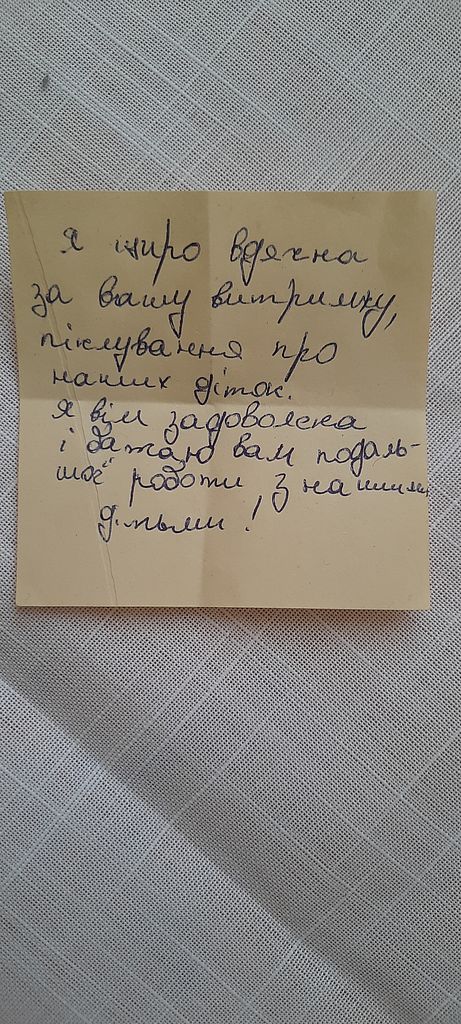 Я щиро вдячна
за вашу витримку,
піклування про
наших діток.
Я всім задоволена
і бажаю вам подаль-
шої роботи з нашими
дітьми!